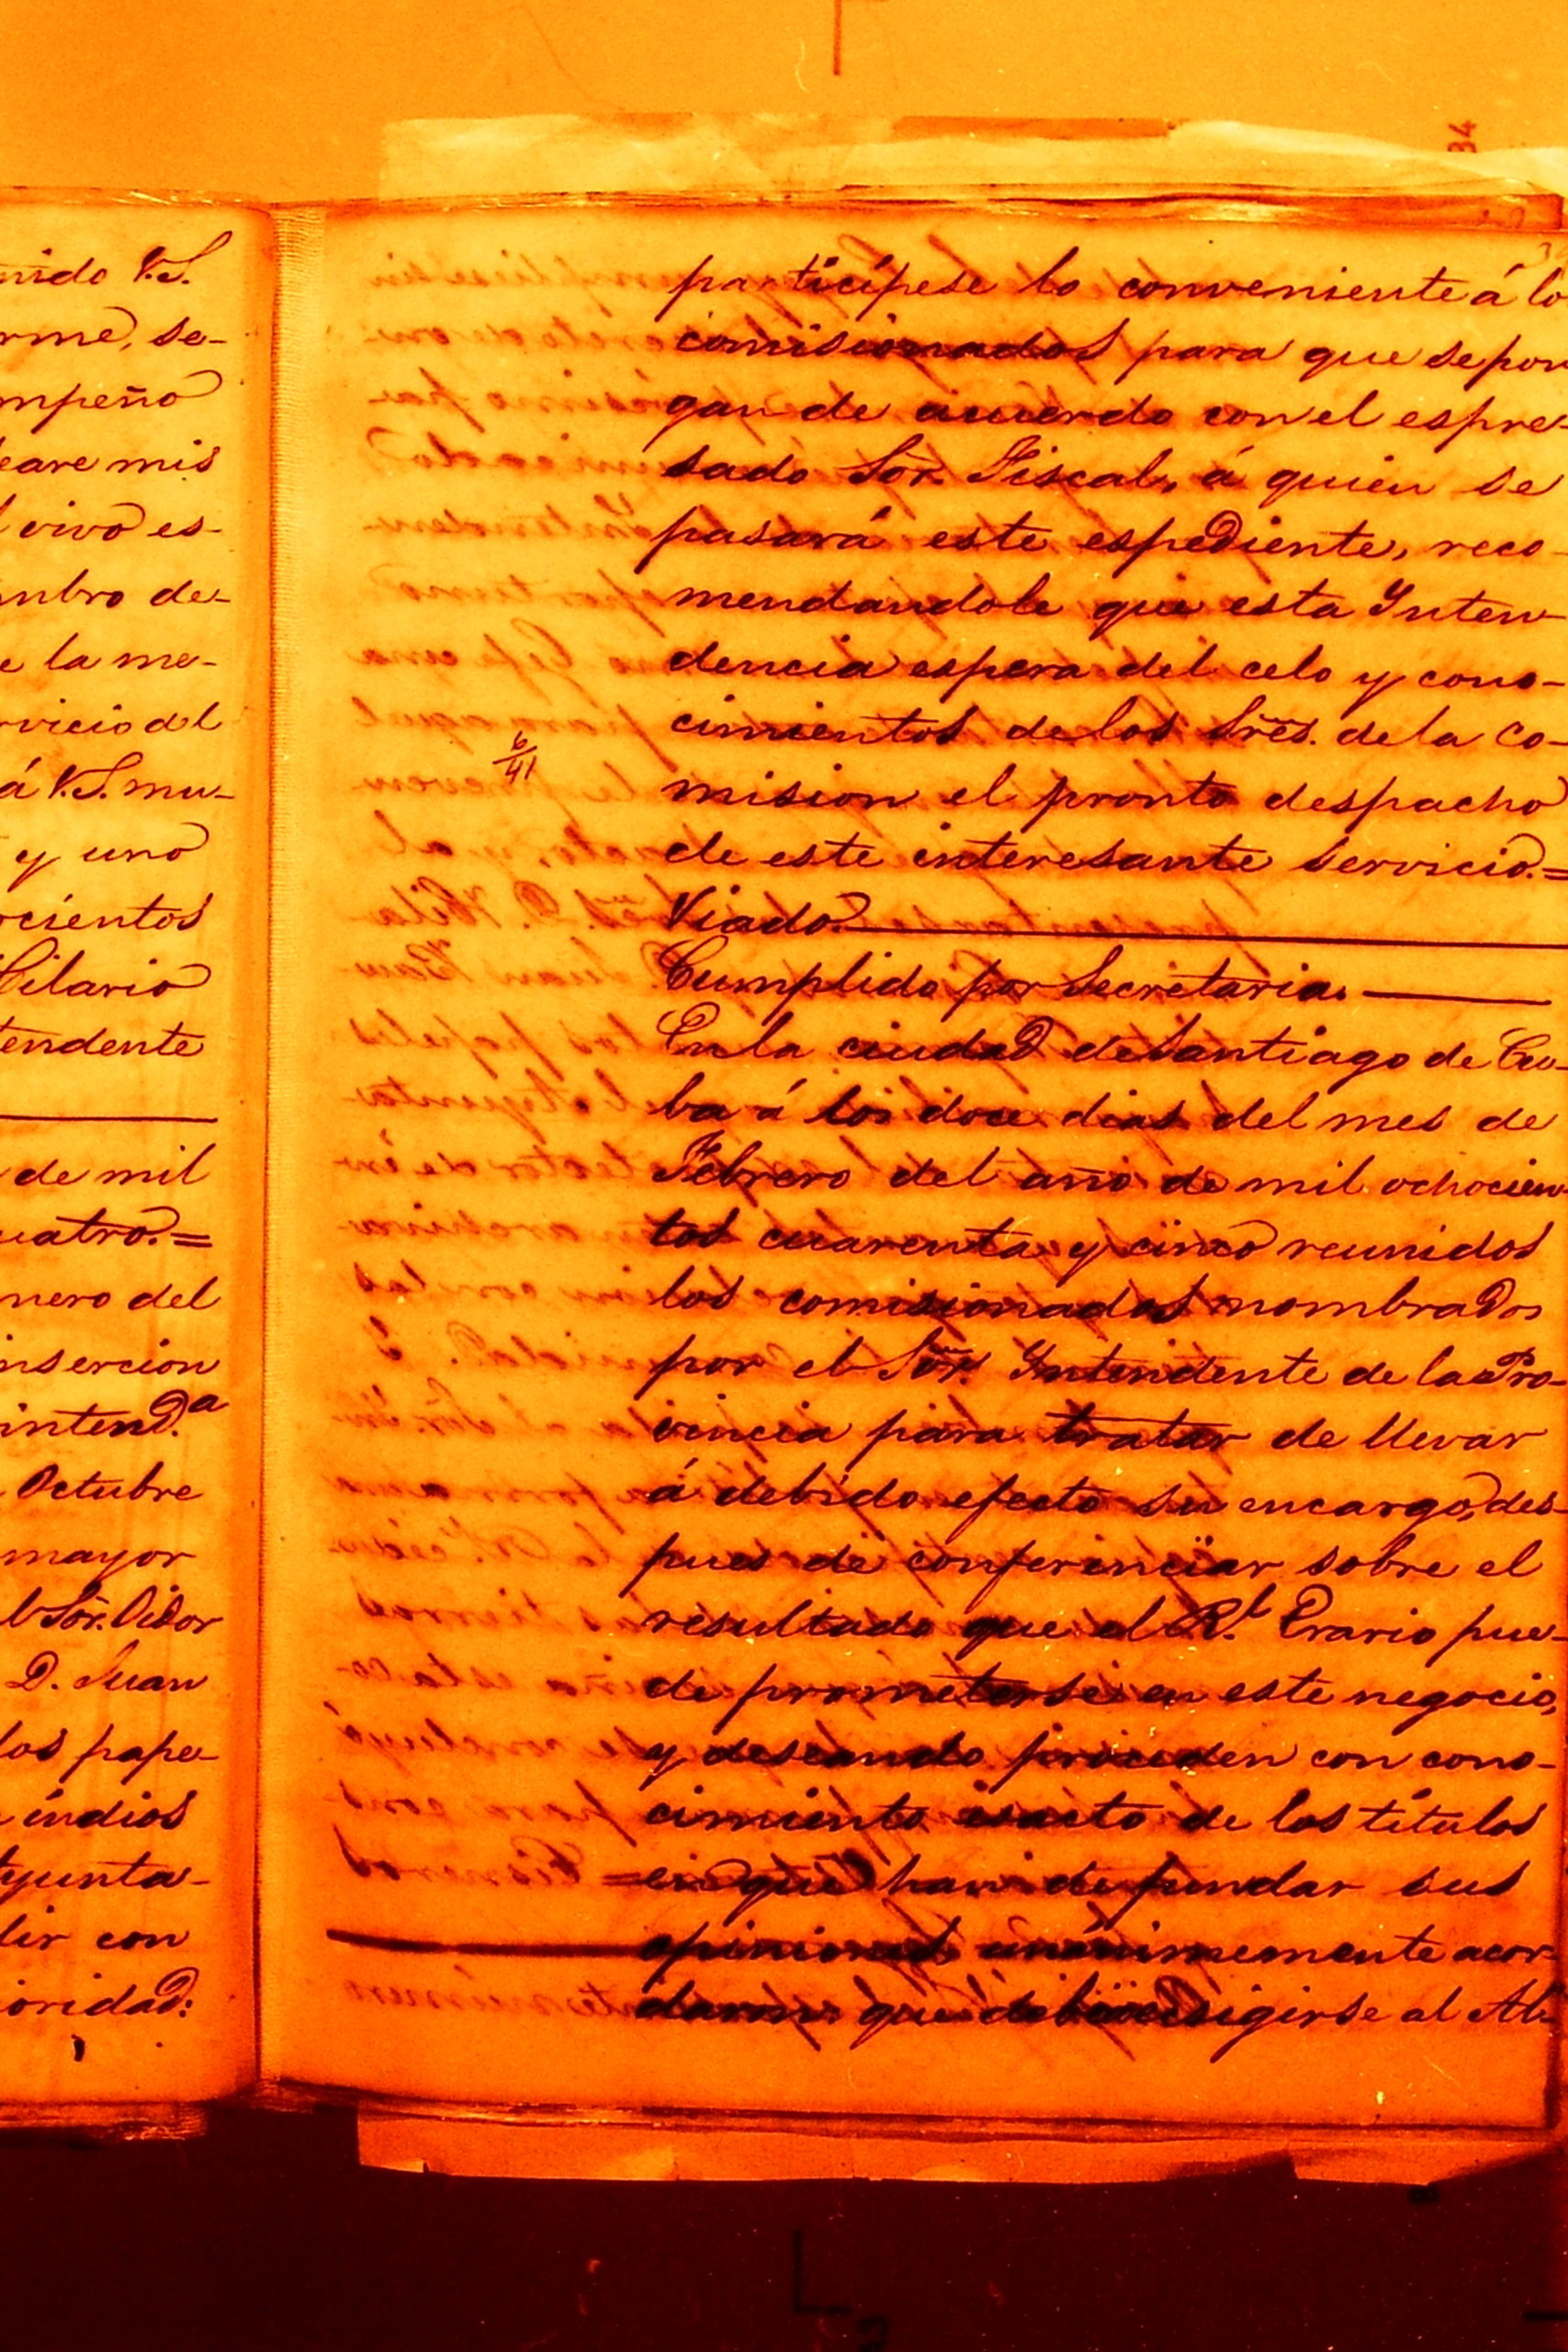 nido V.S.
rme, se-
mpeño
eare mis
vivo es-
mbro de-
e la me-
rvicio del
á V.S. mu-
y uno
rcientos
Hilario
tendente
de mil
uatro.=
nero del
nsercion
intend.a
Octubre
mayor
l Sõr. Oidor
D. Juan
los pape-
indios
yunta-
dir con
ioridad:
participese lo conveniente á lo
comisionados para que se pon
gan de acuerdo con el espre-
sado Sõr. Fiscal, á quien se
pasará este espediente, reco-
mendandole que esta Inten-
dencia espera del celo y cono-
cimientos de los Sres. de la Co-
6/41
mision el pronto despacho
de este interesante servicio.=
Viado.
Cumplido por Secretaria.
En la ciudad de Santiago de Cu-
ba á los doce dias del mes de
Febrero del año de mil ochocien-
tos cuarenta y cinco reunidos
los comisionados nombrados
por el Sõr. Intendente de la Pro-
vincia para tratar de llevar
á debido efecto su encargo, des
pues de conferenciar sobre el
resultado que el R.l Erario pue-
de prometerse en este negocio,
y deseando proceden con cono-
cimiento esacto de los titulos
en que han de fundar sus
opiniones unánimemente acor-
daron que debia esigirse al
34